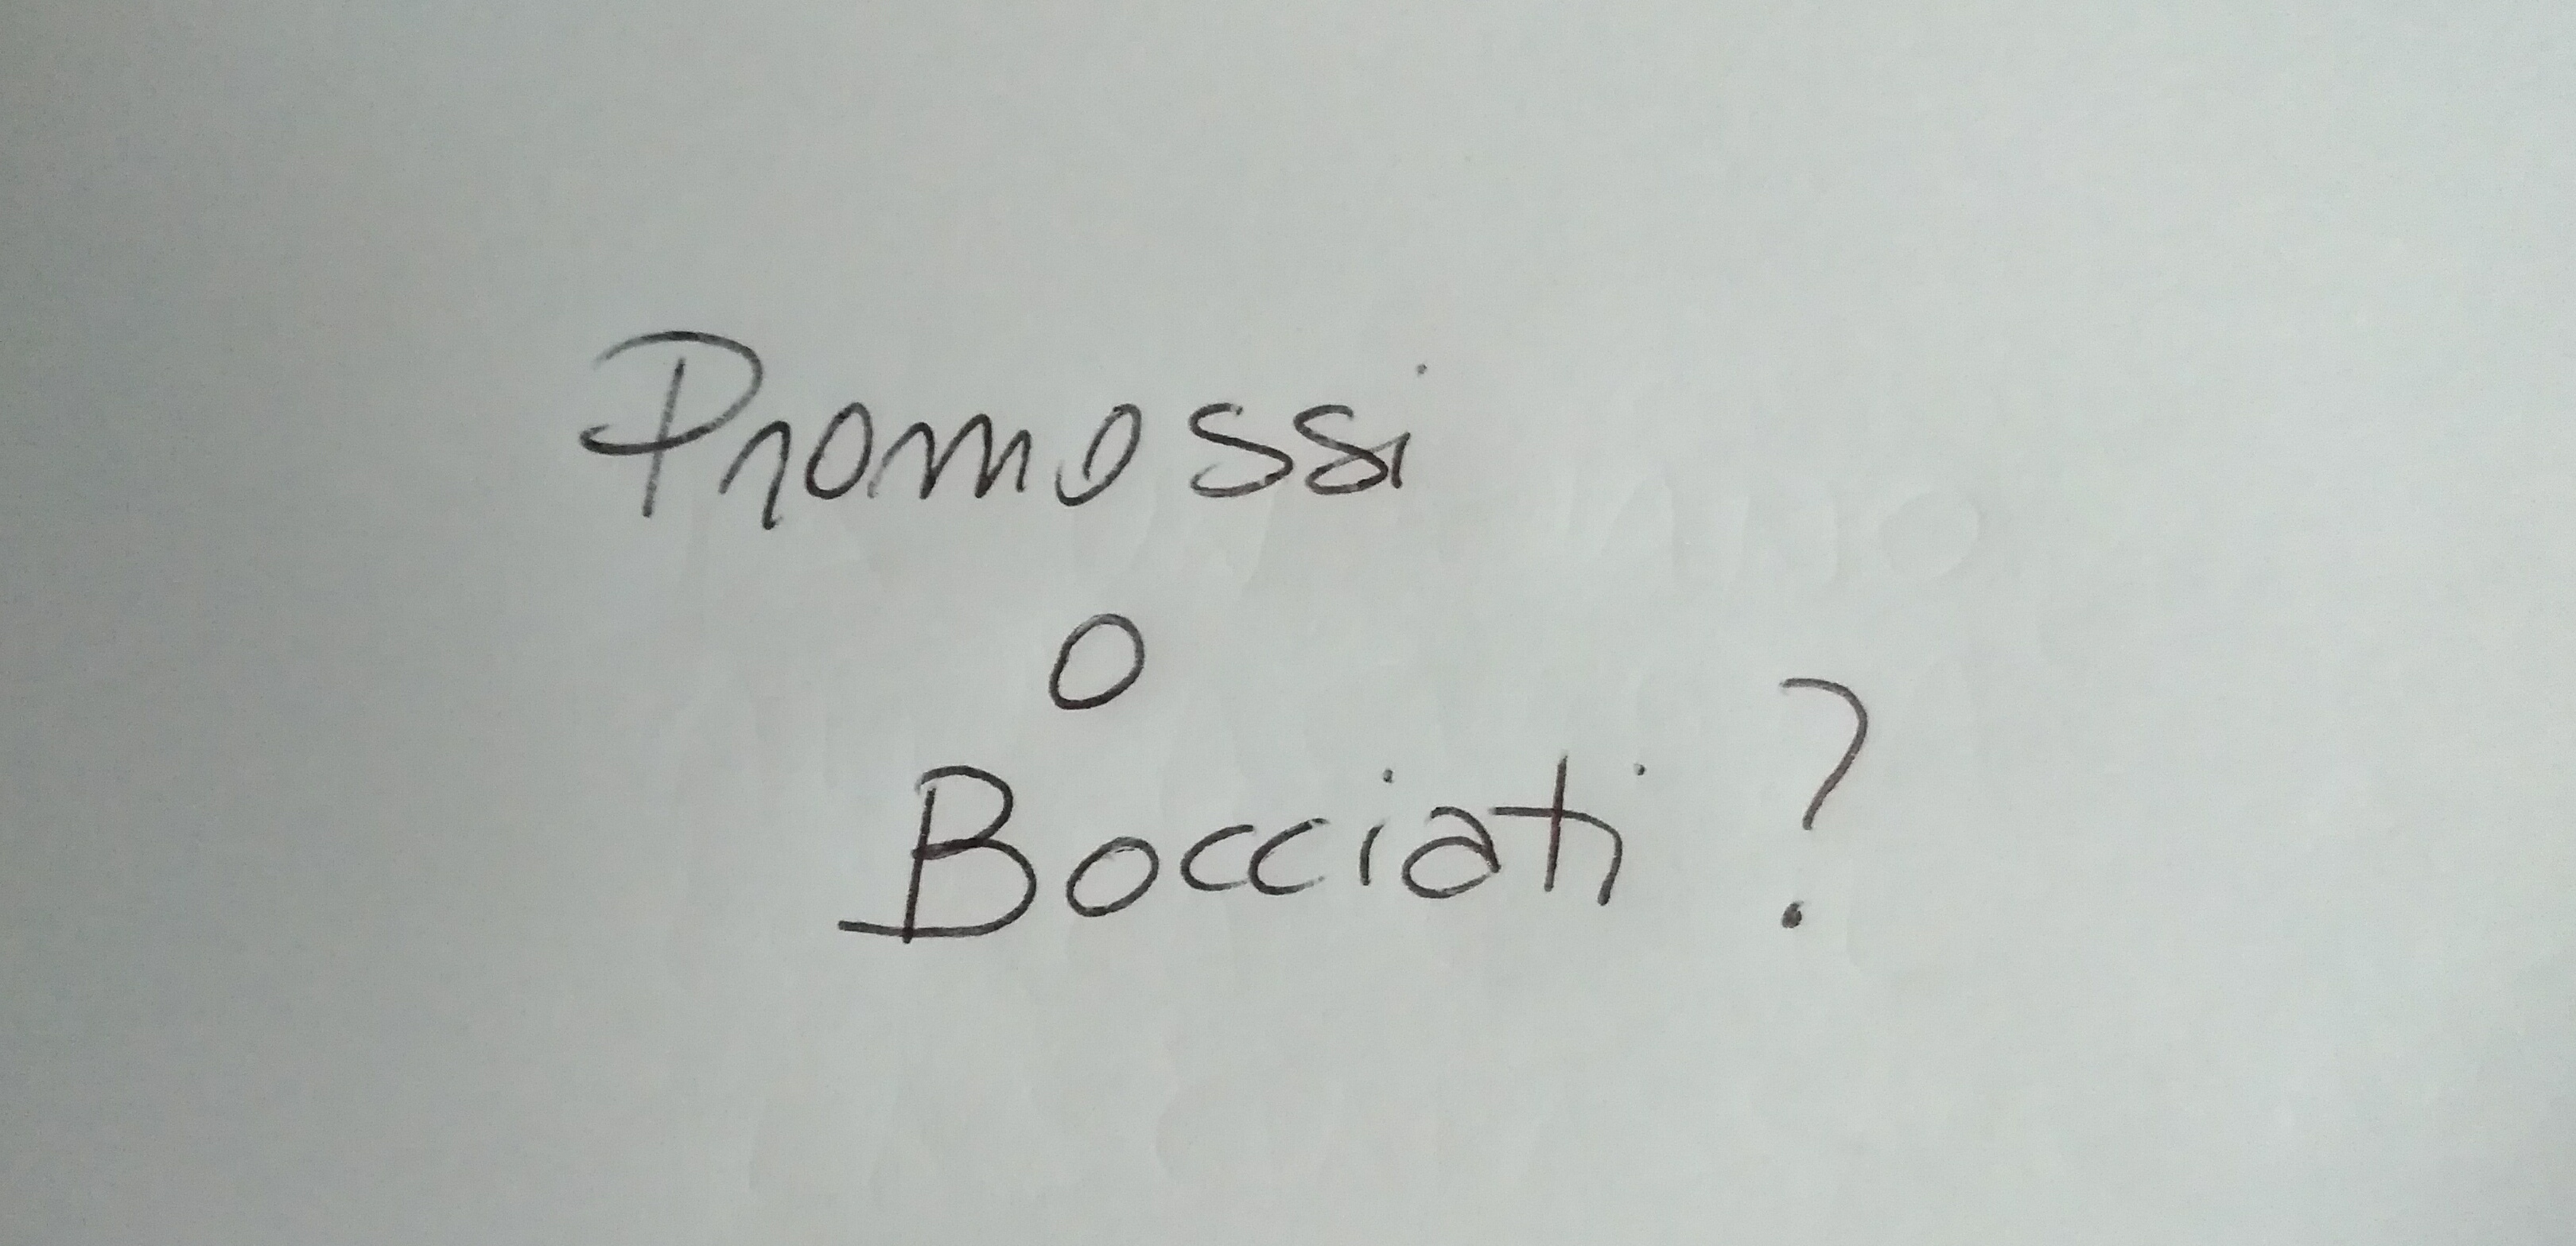 Promossi
o
Bocciati?